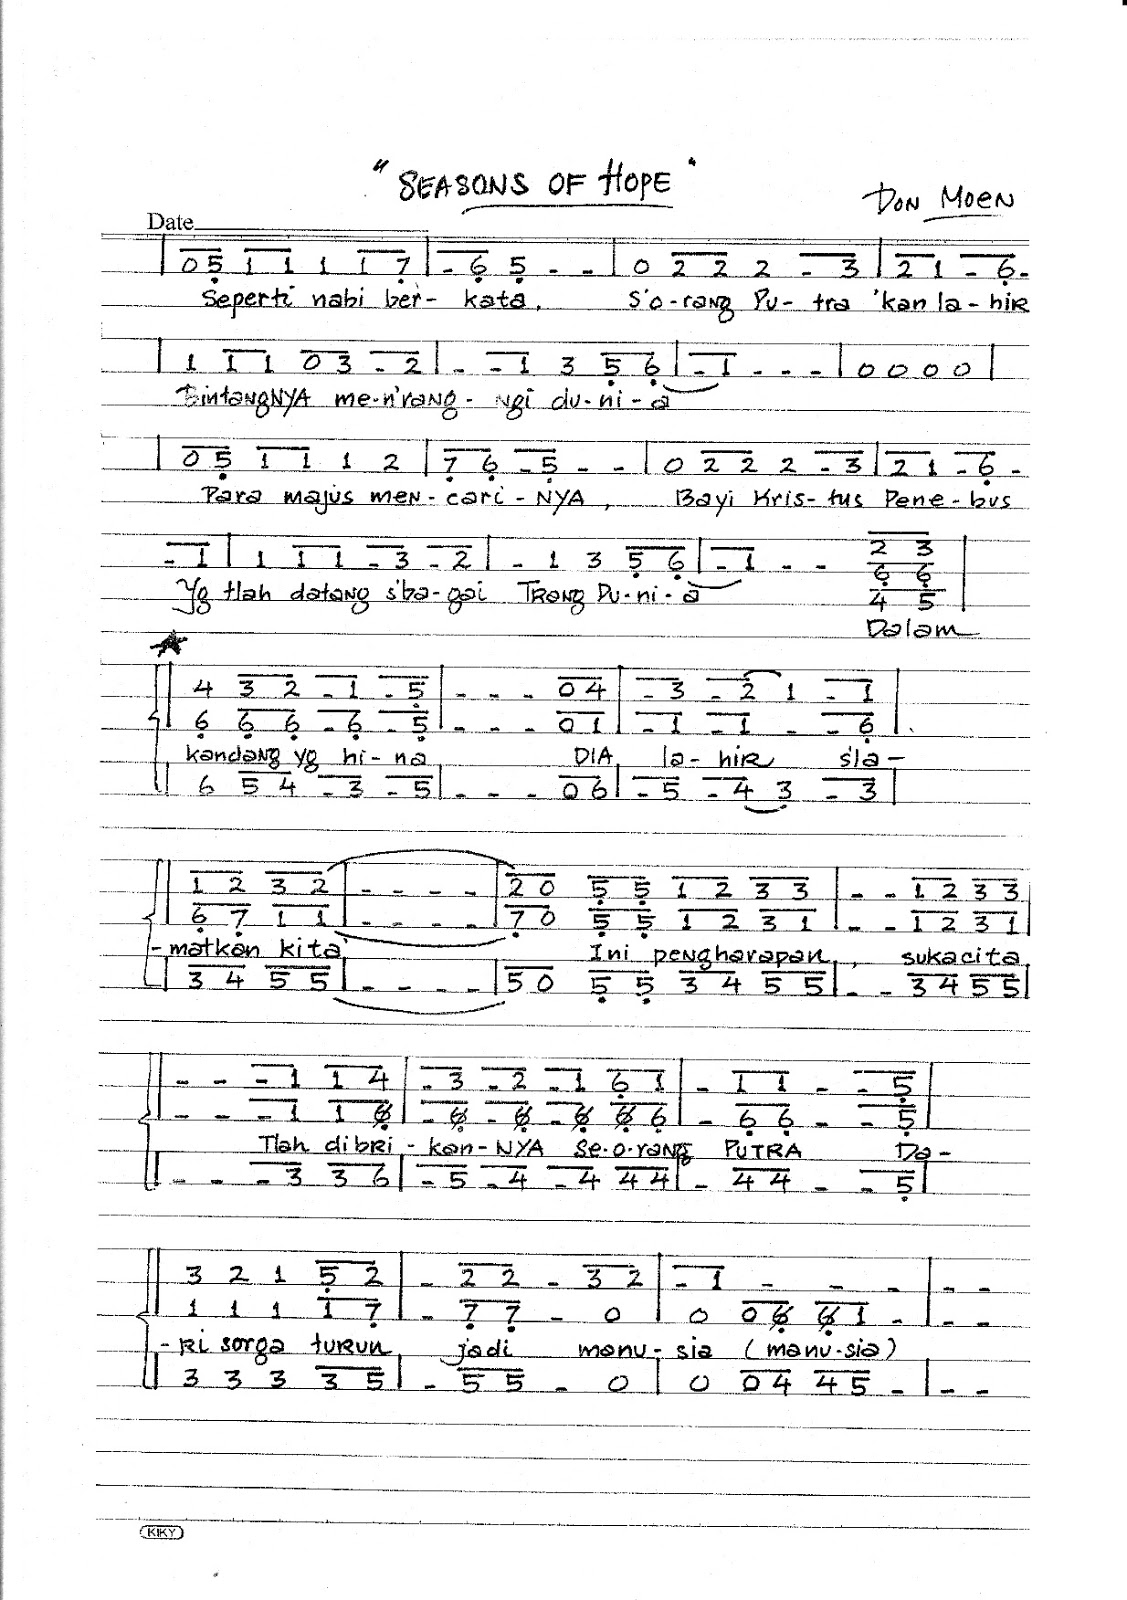 "SEASONS OF HOPE"
DON MOEN
Date
| 0 5 1 1 1 1 7 | - 6 5 - - | 0 2 2 2 - 3 | 2 1 - 6 -
Seperti nabi ber- kata, S'o-rang Pu- tra 'kan la-hir
| 1 1 1 0 3 - 2 | - - 1 3 5 6 | - 1 - - - | 0 0 0 0 |
BintangNYA me-n'rang- ngi du-ni-a
| 0 5 1 1 1 2 | 7 6 - 5 - - | 0 2 2 2 - 3 | 2 1 - 6 -
Para majus men-cari-NYA, Bayi Kris-tus Pene-bus
- 1 | 1 1 1 - 3 - 2 | - 1 3 5 6 | - 1 - - 2 3 |
6 6
4 5
Yg tlah datang s'ba-gai TRang Du-ni-a
Dalam
4 3 2 - 1 - 5 | - - - 0 4 | - 3 - 2 1 - 1 |
6 6 6 - 6 - 5 | - - - 0 1 | - 1 - 1 - - 6 |
kandang yg hi-na DIA la-hir s'la-
6 5 4 - 3 - 5 | - - - 0 6 | - 5 - 4 3 - 3 |
1 2 3 2 | - - - - | 2 0 5 5 1 2 3 3 | - - 1 2 3 3
6 7 1 1 | - - - - | 7 0 5 5 1 2 3 1 | - - 1 2 3 1 |
-matkan kita Ini pengharapan, sukacita
| 3 4 5 5 | - - - - | 5 0 5 5 3 4 5 5 | - - 3 4 5 5 |
- - - 1 1 4 | - 3 - 2 - 1 6 1 | - 1 1 - - 5 |
- - - 1 1 6 | - 6 - 6 - 6 6 6 | - 6 6 - - 5 |
Tlah dibri-kan-NYA Se-o-rang PUTRA Da-
- - - 3 3 6 | - 5 - 4 - 4 4 4 | - 4 4 - - 5 |
3 2 1 5 2 | - 2 2 - 3 2 | - 1 - - - | - -
1 1 1 1 7 | - 7 7 - 0 | 0 0 6 6 1 - | - -
-Ri sorga turun jadi manu-sia (manu-sia)
3 3 3 3 5 | - 5 5 - 0 | 0 0 4 4 5 - | - -
KIKY